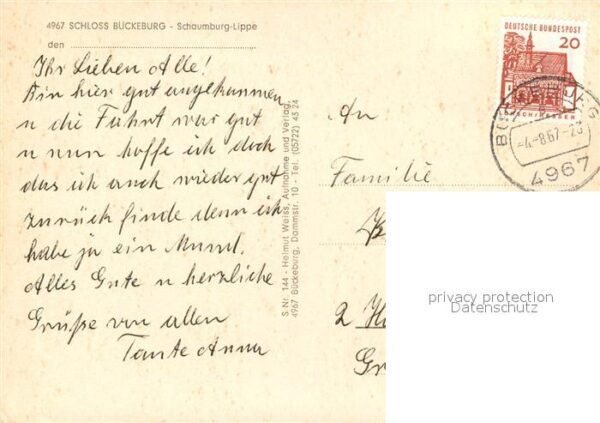 4967 SCHLOSS BÜCKEBURG - Schaumburg-Lippe
den
Ihr Lieben Alle!
Bin hier gut angekommen
u die Fahrt war gut
u nun hoffe ich doch
das ich auch wieder gut
zurück finde denn ich
habe ja ein Mund.
Alles Gute u herzliche
Grüße von allen
Tante Anna
S.Nr. 144 - Helmut Weiss, Aufnahme und Verlag,
4967 Bückeburg, Dammstr. 10 - Tel. (05722) 45 24
An
Familie
2 H
Gr
DEUTSCHE BUNDESPOST
20
-4.-8.67-20
4967
privacy protection
Datenschutz